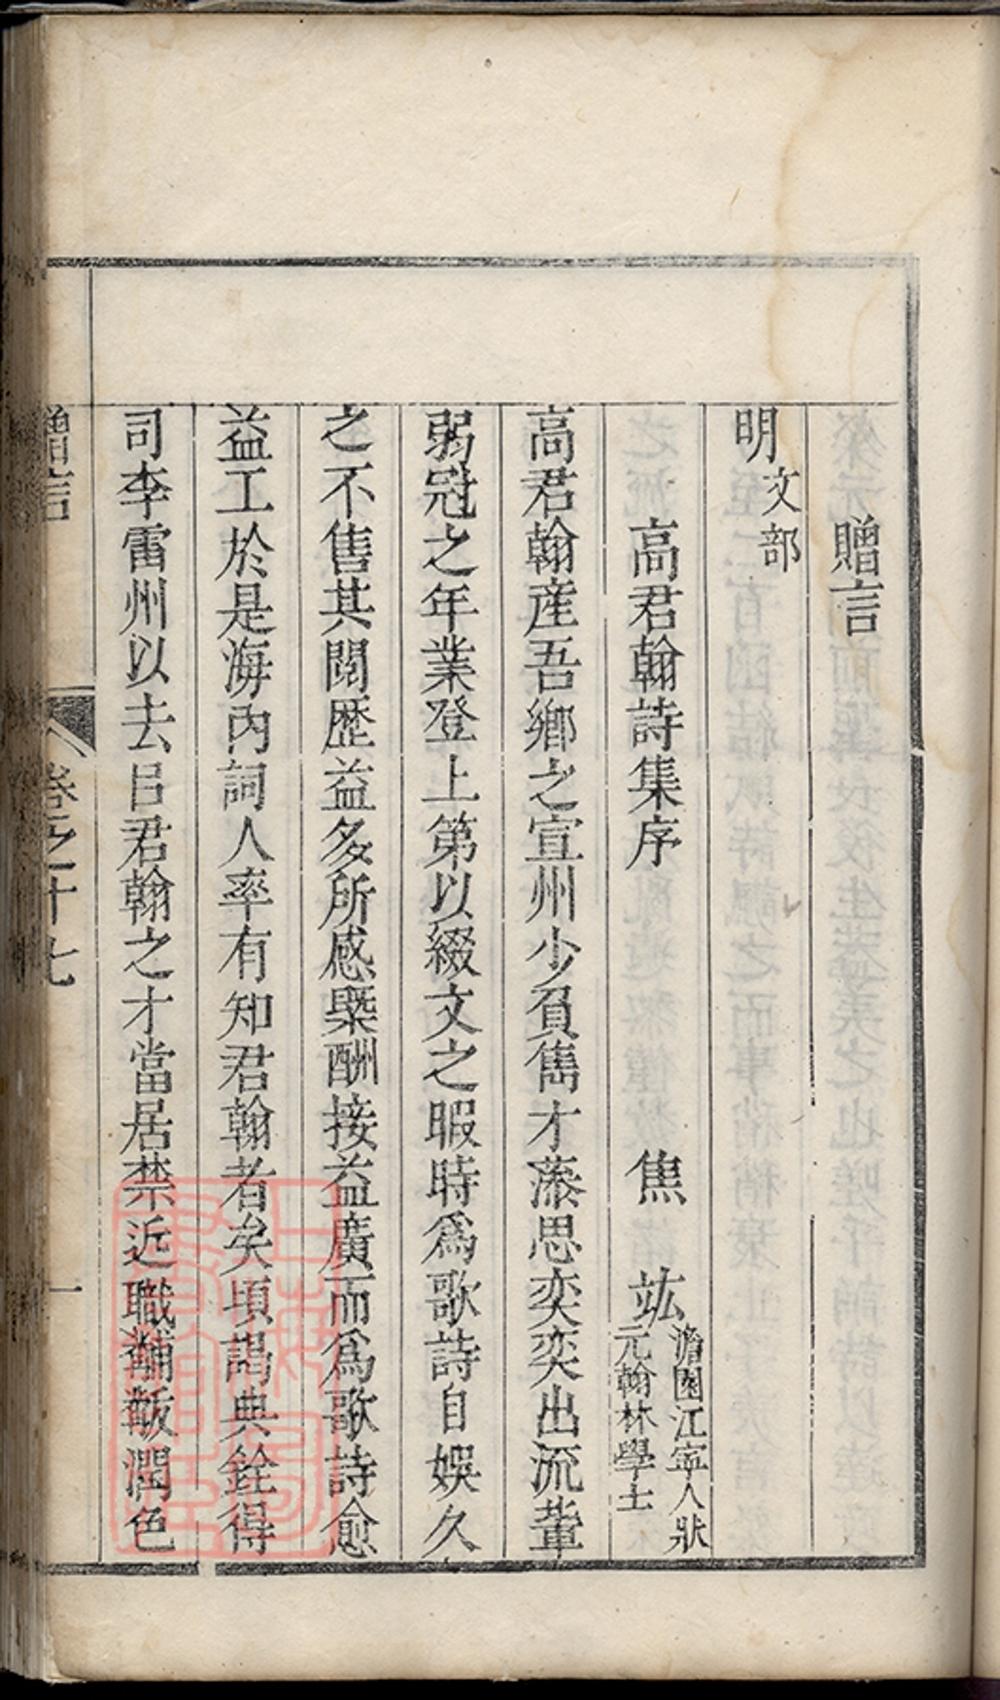 贈言
明文部
高君翰詩集序 焦竑 澹園江寧人狀元翰林學士
高君翰産吾鄉之宣州少負雋才藻思奕奕出流輩
弱冠之年業登上第以綴文之暇時爲歌詩自娛久
之不售其閱歷益多所感槩酬接益廣而爲歌詩愈
益工於是海內詞人率有知君翰者矣頃謁典銓得
司李雷州以去吕君翰之才當居禁近職黼黻潤色
贈言 卷之十七 一